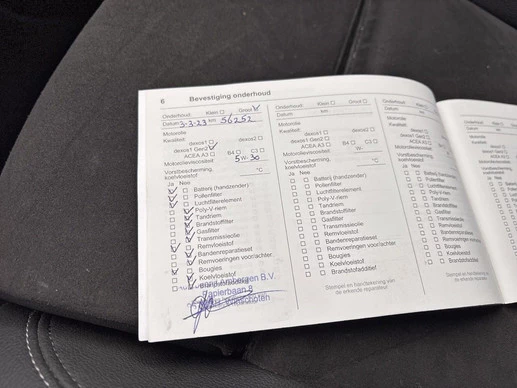 6 Bevestiging onderhoud
Onderhoud: Klein Groot
Datum 3-3-23 km 56252
Motorolie
Kwaliteit:
dexos1 dexos2
dexos1 Gen2
ACEA A3 B4 C3
Motorolieviscositeit: 5 W- 30
Vorstbescherming
koelvloeistof: °C
Ja Nee
Batterij (handzender)
Pollenfilter
Luchtfilterelement
Poly-V-riem
Tandriem
Brandstoffilter
Gasfilter
Transmissieolie
Remvloeistof
Bandenreparatieset
Remvoeringen voor/achter
Bougies
Koelvloeistof
Papierbaan 8
Winschoten
Onderhoud: Klein Groot
Datum: km
Motorolie
Kwaliteit: dexos2
dexos1
dexos1 Gen2
ACEA A3 B4 C3
Motorolieviscositeit: W-
Vorstbescherming
koelvloeistof: °C
Ja Nee
Batterij (handzender)
Pollenfilter
Luchtfilterelement
Poly-V-riem
Tandriem
Brandstoffilter
Gasfilter
Transmissieolie
Remvloeistof
Bandenreparatieset
Remvoeringen voor/achter
Bougies
Koelvloeistof
Brandstofadditief
Stempel en handtekening van
de erkende reparateur
Onderhoud: Klein
Datum:
Motorolie
Kwaliteit:
dexos1
dexos1 Gen2
ACEA A3
Motorolieviscositeit:
Vorstbescherming
koelvloeistof:
Ja Nee
Batterij
Pollenfilter
Luchtfilterelement
Poly-V-riem
Tandriem
Brandstoffilter
Gasfilter
Transmissieolie
Remvloeistof
Bandenreparatieset
Remvoeringen
Bougies
Koelvloeistof
Brandstofadditief
Stempel en handtekening
de erkende